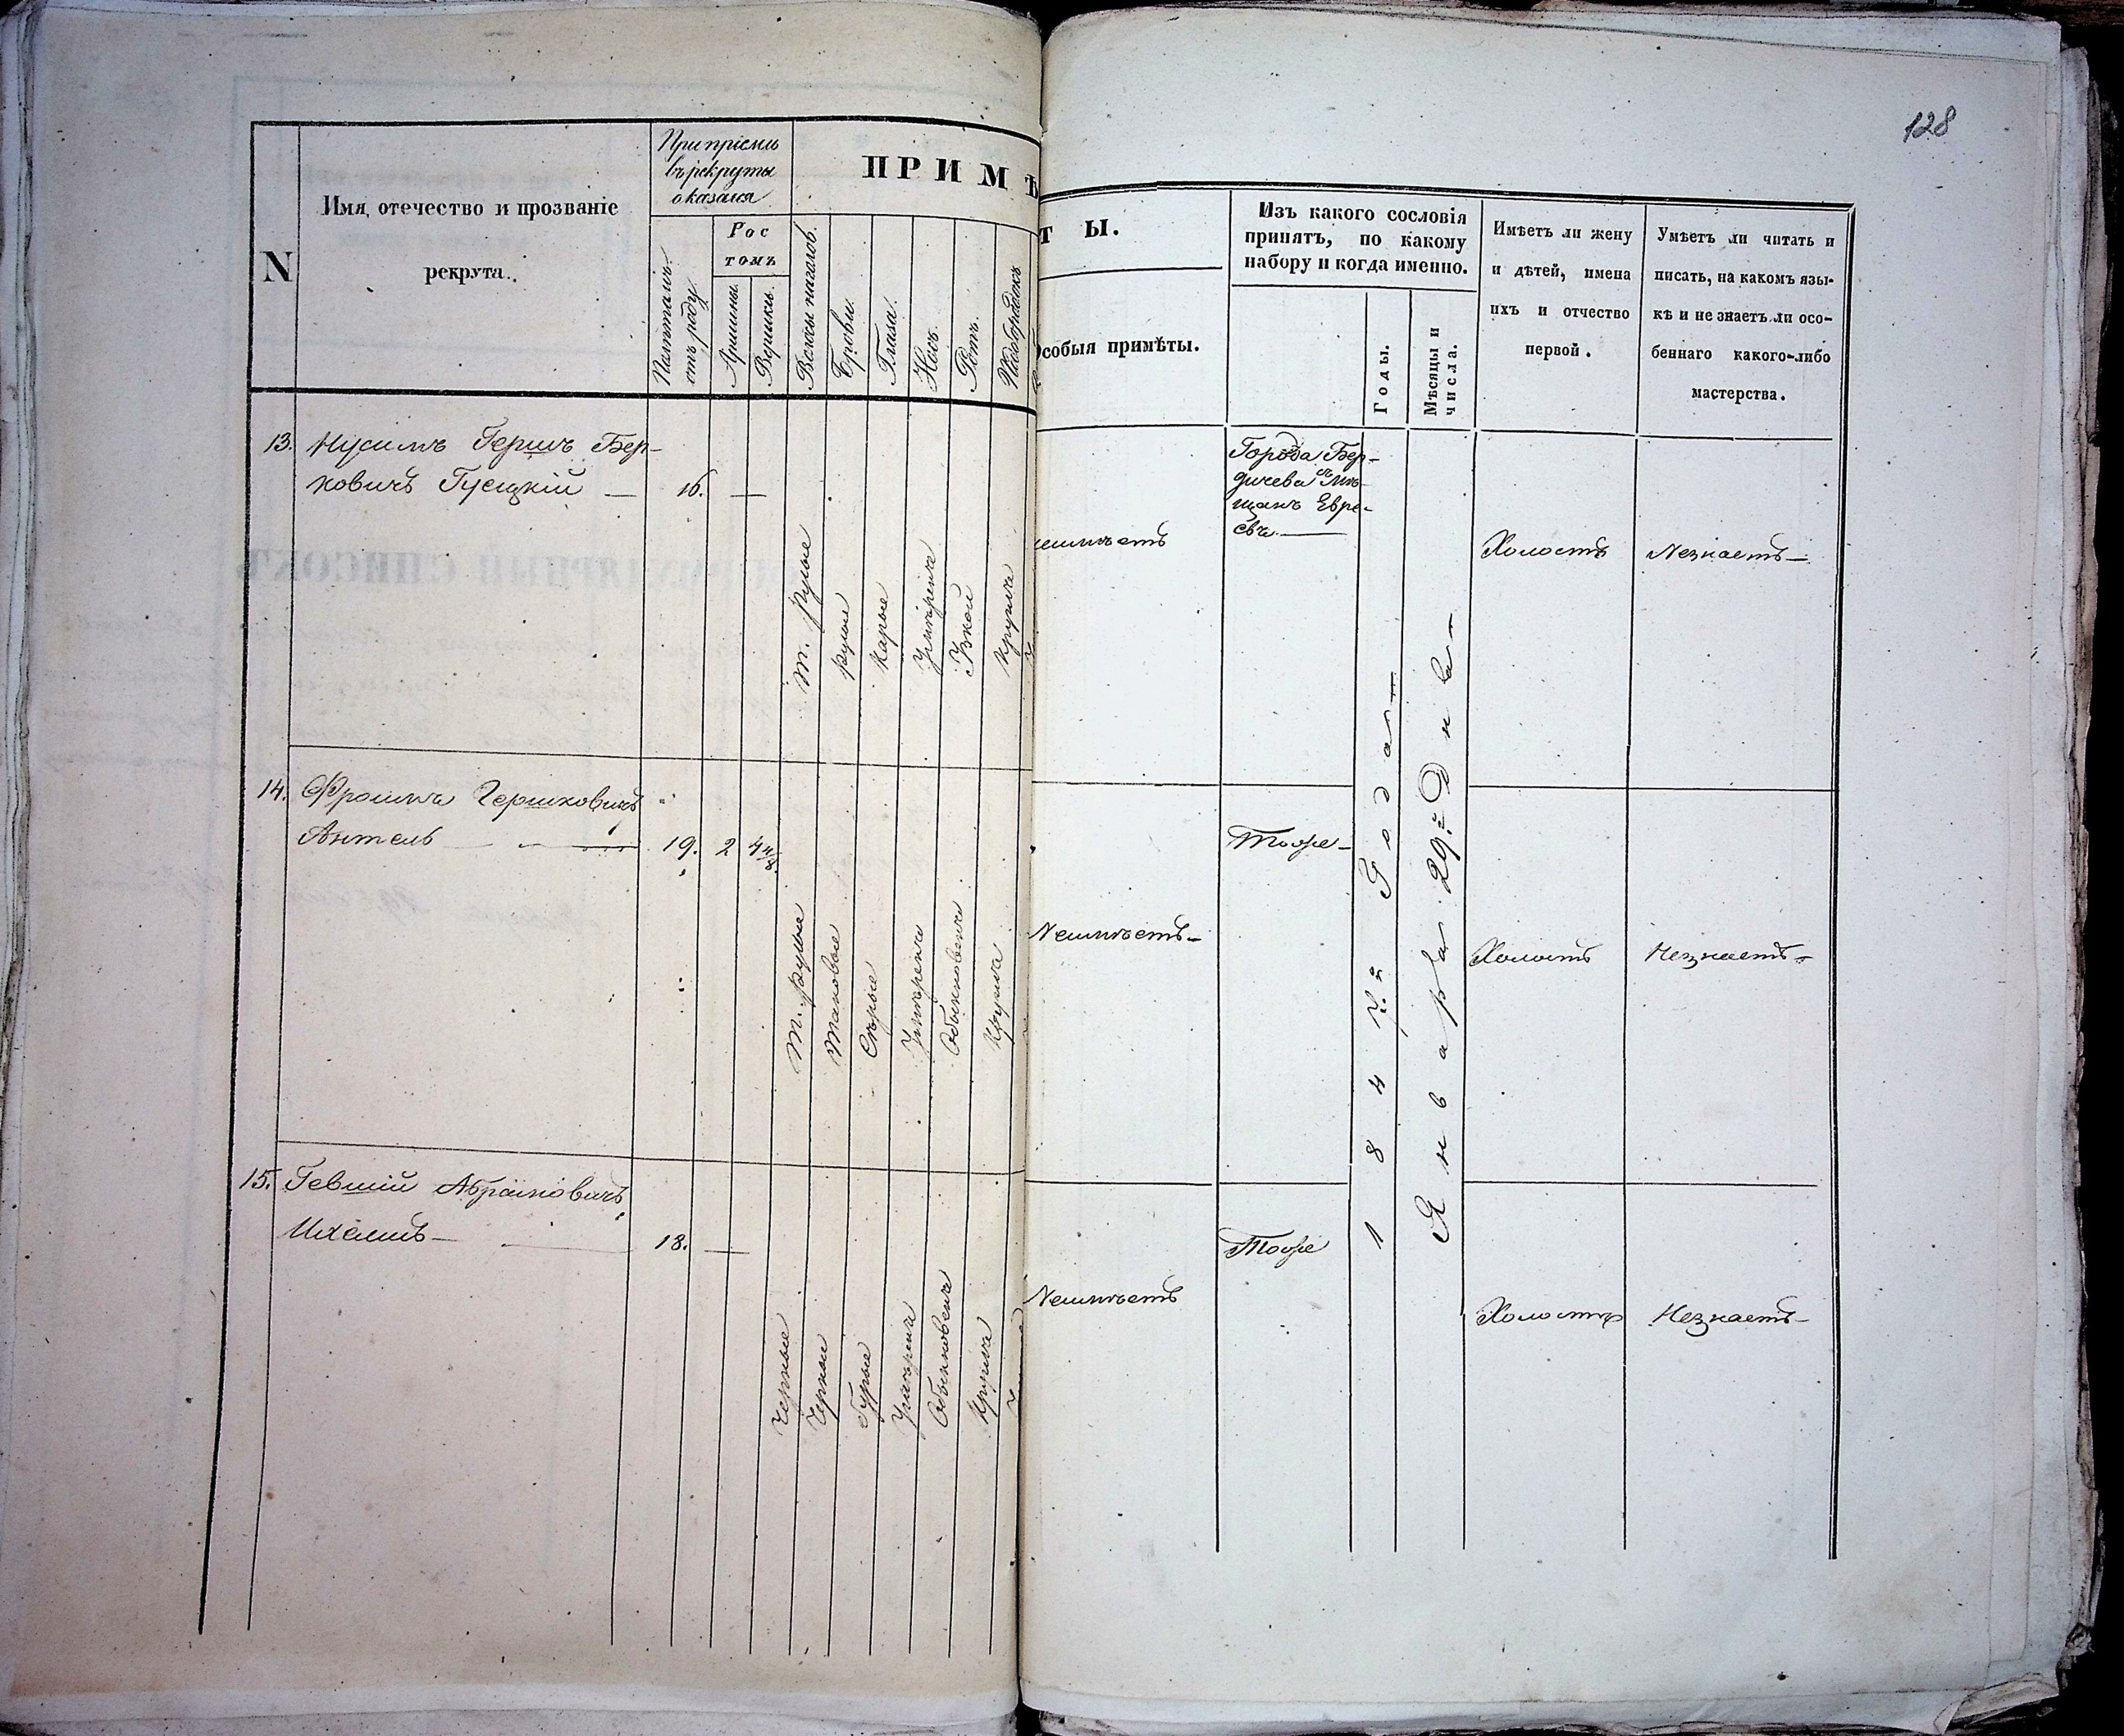 128
N
Имя, отечество и прозваніе
рекрута.
При пріемѣ
въ рекруты
оказался
Рос
томъ
Лѣтъ
отъ роду
Аршины.
Вершки.
ПРИМѢ
Волосы на голов.
Брови.
Глаза.
Носъ.
Ротъ.
Подбородокъ
ТЫ.
Особыя примѣты.
Изъ какого сословія
принятъ, по какому
набору и когда именно.
Годы.
Мѣсяцы и
числа.
Имѣетъ ли жену
и дѣтей, имена
ихъ и отчество
первой.
Умѣетъ ли читать и
писать, на какомъ язы-
кѣ и не знаетъ ли осо-
беннаго какого-либо
мастерства.
13. Нусимъ Гершъ Бер-
ковичъ Гусцкій — 16. —
т. русые
русые
карые
Умѣренъ
Узкой
Кругла
неимѣетъ
Города Бер-
дичева съ Мѣ-
щанъ Евре-
евъ
Холостъ
Незнаетъ
14. Фроимъ Гершковичъ
Антель 19. 2 4 4/8
т. русые
таковые
Сѣрые
Умѣренъ
Обыкновенъ
Кругла
Неимѣетъ
Тоже
Холостъ
Незнаетъ
15. Гевшій Абрамовичъ
Ихелисъ 18. —
Черные
Черные
бурые
Умѣренъ
Обыкновенъ
Кругла
Неимѣетъ
Тоже
Холостъ
Незнаетъ
1847го Года
Января 29го Дня